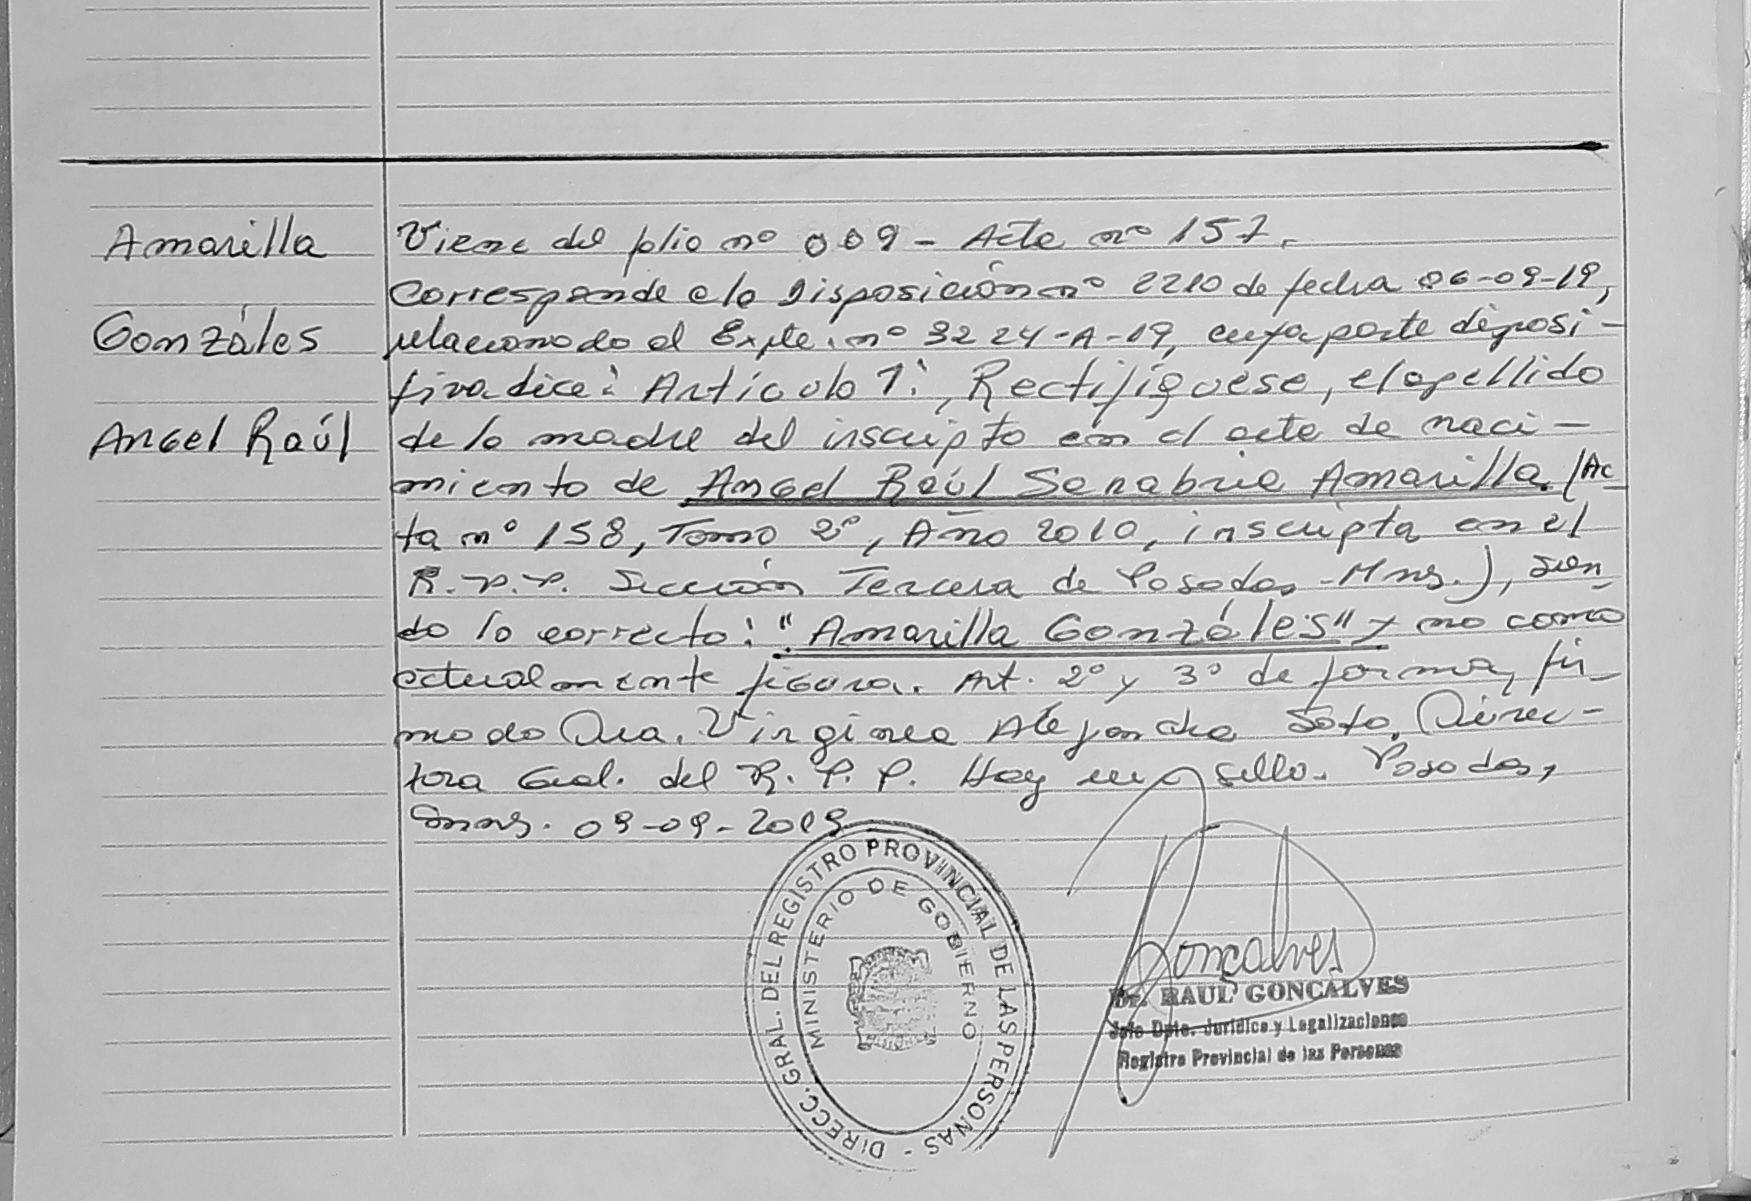 Amarilla
Gonzáles
Angel Raúl
Viene del folio nº 009 - Acta nº 157.
Corresponde a la Disposición nº 2210 de fecha 06-09-19,
relacionado al Expte. nº 3224-A-19, cuya parte disposi-
tiva dice: Artículo 1º, Rectifíquese, el apellido
de la madre del inscripto en el acta de naci-
miento de Angel Raúl Sanabria Amarilla. (Ac-
ta nº 158, Tomo 2º, Año 2010, inscripta en el
R.P.P. Sección Tercera de Posadas - Mns.), sien-
do lo correcto: "Amarilla Gonzáles" y no como
actualmente figura. Art. 2º y 3º de forma, fir-
mado Dra. Virginia Alejandra Soto, Direc-
tora Gral. del R.P.P. Hay un sello. Posadas,
Mns. 09-09-2019
DIRECC. GRAL. DEL REGISTRO PROVINCIAL DE LAS PERSONAS -
MINISTERIO DE GOBIERNO
Gonçalves
Dr. RAUL GONCALVES
Jefe Dpto. Jurídico y Legalizaciones
Registro Provincial de las Personas